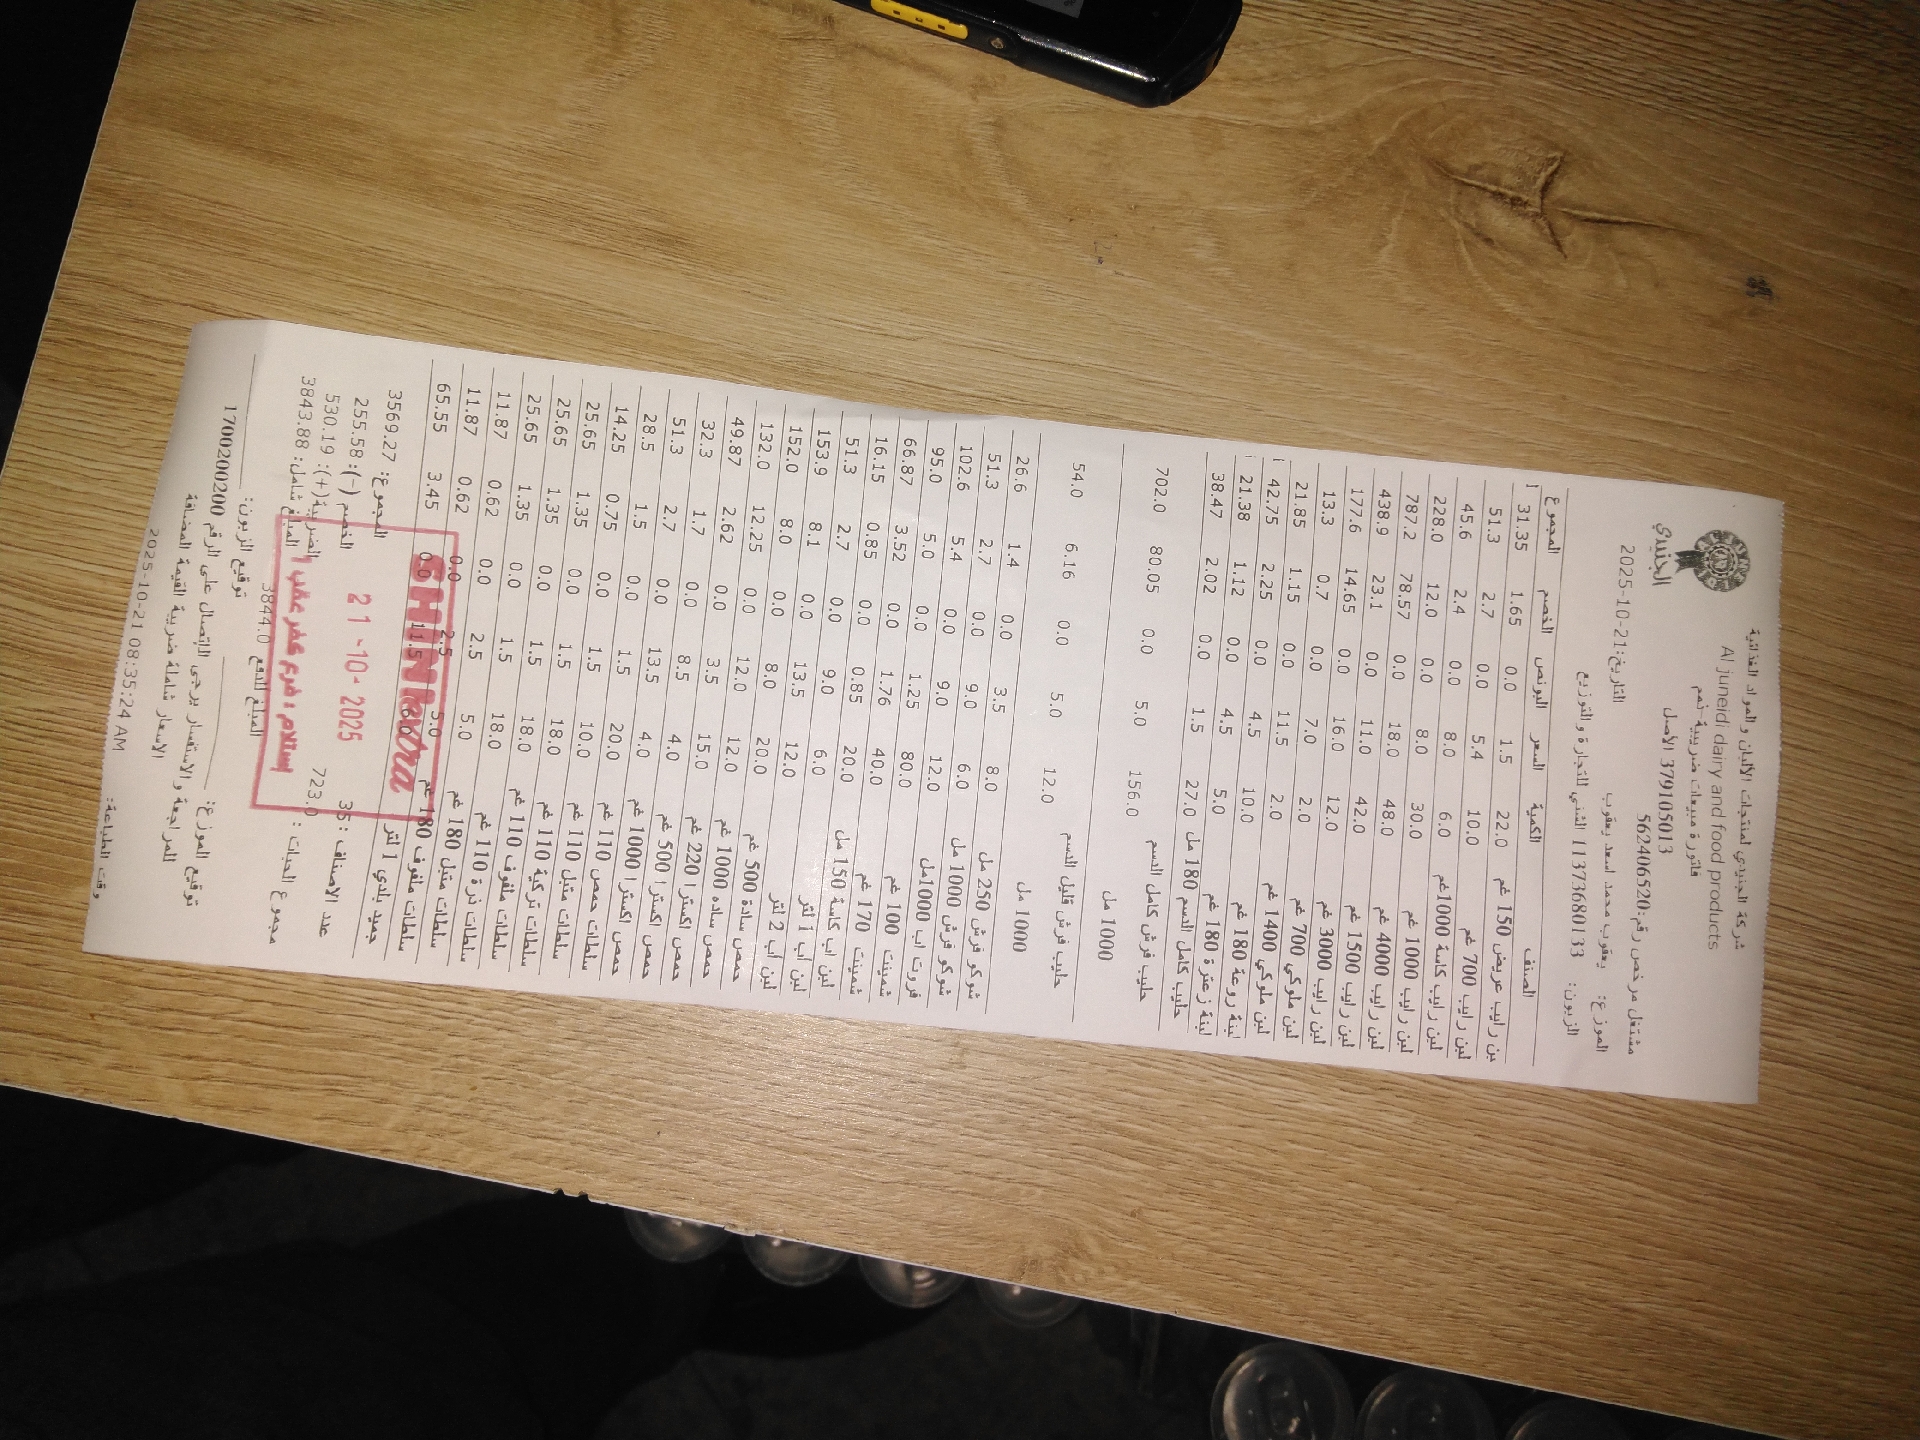 شركة الجنيدي لمنتجات الألبان والمواد الغذائية
Al juneidi dairy and food products
فاتورة مبيعات ضريبية-نعم
الجنيدي
379105013 الاصل
مشتغل مرخص رقم:562406520
التاريخ:21-10-2025
الموزع: يعقوب محمد اسعد يعقوب
الزبون: 1137368013 الشني للتجارة والتوزيع
الصنف الكمية السعر البونص الخصم المجموع
لبن رايب عريض 150 غم 22.0 1.5 0.0 1.65 31.35
لبن رايب 700 غم 10.0 5.4 0.0 2.7 51.3
لبن رايب كاسة 1000غم 6.0 8.0 0.0 2.4 45.6
لبن رايب 1000 غم 30.0 8.0 0.0 12.0 228.0
لبن رايب 4000 غم 48.0 18.0 0.0 78.57 787.2
لبن رايب 1500 غم 42.0 11.0 0.0 23.1 438.9
لبن رايب 3000 غم 12.0 16.0 0.0 14.65 177.6
لبن ملوكي 700 غم 2.0 7.0 0.0 0.7 13.3
لبن ملوكي 1400 غم 2.0 11.5 0.0 1.15 21.85
لبنة روعة 180 غم 10.0 4.5 0.0 2.25 42.75
لبنة زعترة 180 غم 5.0 4.5 0.0 1.12 21.38
حليب كامل الدسم 180 مل 27.0 1.5 0.0 2.02 38.47
حليب فرش كامل الدسم 156.0 5.0 0.0 80.05 702.0
1000 مل
حليب فرش قليل الدسم 12.0 5.0 0.0 6.16 54.0
1000 مل
شوكو فرش 250 مل 8.0 3.5 0.0 1.4 26.6
شوكو فرش 1000 مل 6.0 9.0 0.0 2.7 51.3
فروت اب 1000مل 12.0 9.0 0.0 5.4 102.6
شمينت 100 غم 80.0 1.25 0.0 5.0 95.0
شمينت 170 غم 40.0 1.76 0.0 3.52 66.87
لبن اب كاسة 150 مل 20.0 0.85 0.0 0.85 16.15
لبن أب 1 لتر 6.0 9.0 0.0 2.7 51.3
لبن أب 2 لتر 12.0 13.5 0.0 8.1 153.9
حمص سادة 500 غم 20.0 8.0 0.0 8.0 152.0
حمص ساده 1000 غم 12.0 12.0 0.0 12.25 132.0
حمص اكسترا 220 غم 15.0 3.5 0.0 2.62 49.87
حمص اكسترا 500 غم 4.0 8.5 0.0 1.7 32.3
حمص اكسترا 1000 غم 4.0 13.5 0.0 2.7 51.3
سلطات حمص 110 غم 20.0 1.5 0.0 1.5 28.5
سلطات متبل 110 غم 10.0 1.5 0.0 0.75 14.25
سلطات تركية 110 غم 18.0 1.5 0.0 1.35 25.65
سلطات ملفوف 110 غم 18.0 1.5 0.0 1.35 25.65
سلطات ذرة 110 غم 18.0 1.5 0.0 1.35 25.65
سلطات متبل 180 غم 5.0 2.5 0.0 0.62 11.87
سلطات ملفوف 180 غم 5.0 2.5 0.0 0.62 11.87
جميد بلدي 1 لتر 6.0 11.5 0.0 3.45 65.55
المجموع: 3569.27
عدد الاصناف: 35 الخصم (-): 255.58
الضريبة(+): 530.19
مجموع الحبات: 723.0 المبلغ شامل: 3843.88
المبلغ للدفع 3844.0
SHINI extra
21 -10- 2025
استلام : فرع كفر عقب
توقيع الموزع: توقيع الزبون:
للمراجعة والاستفسار يرجى الاتصال على الرقم 1700200200
الاسعار شاملة ضريبة القيمة المضافة
وقت الطباعة: 2025-10-21 08:35:24 AM